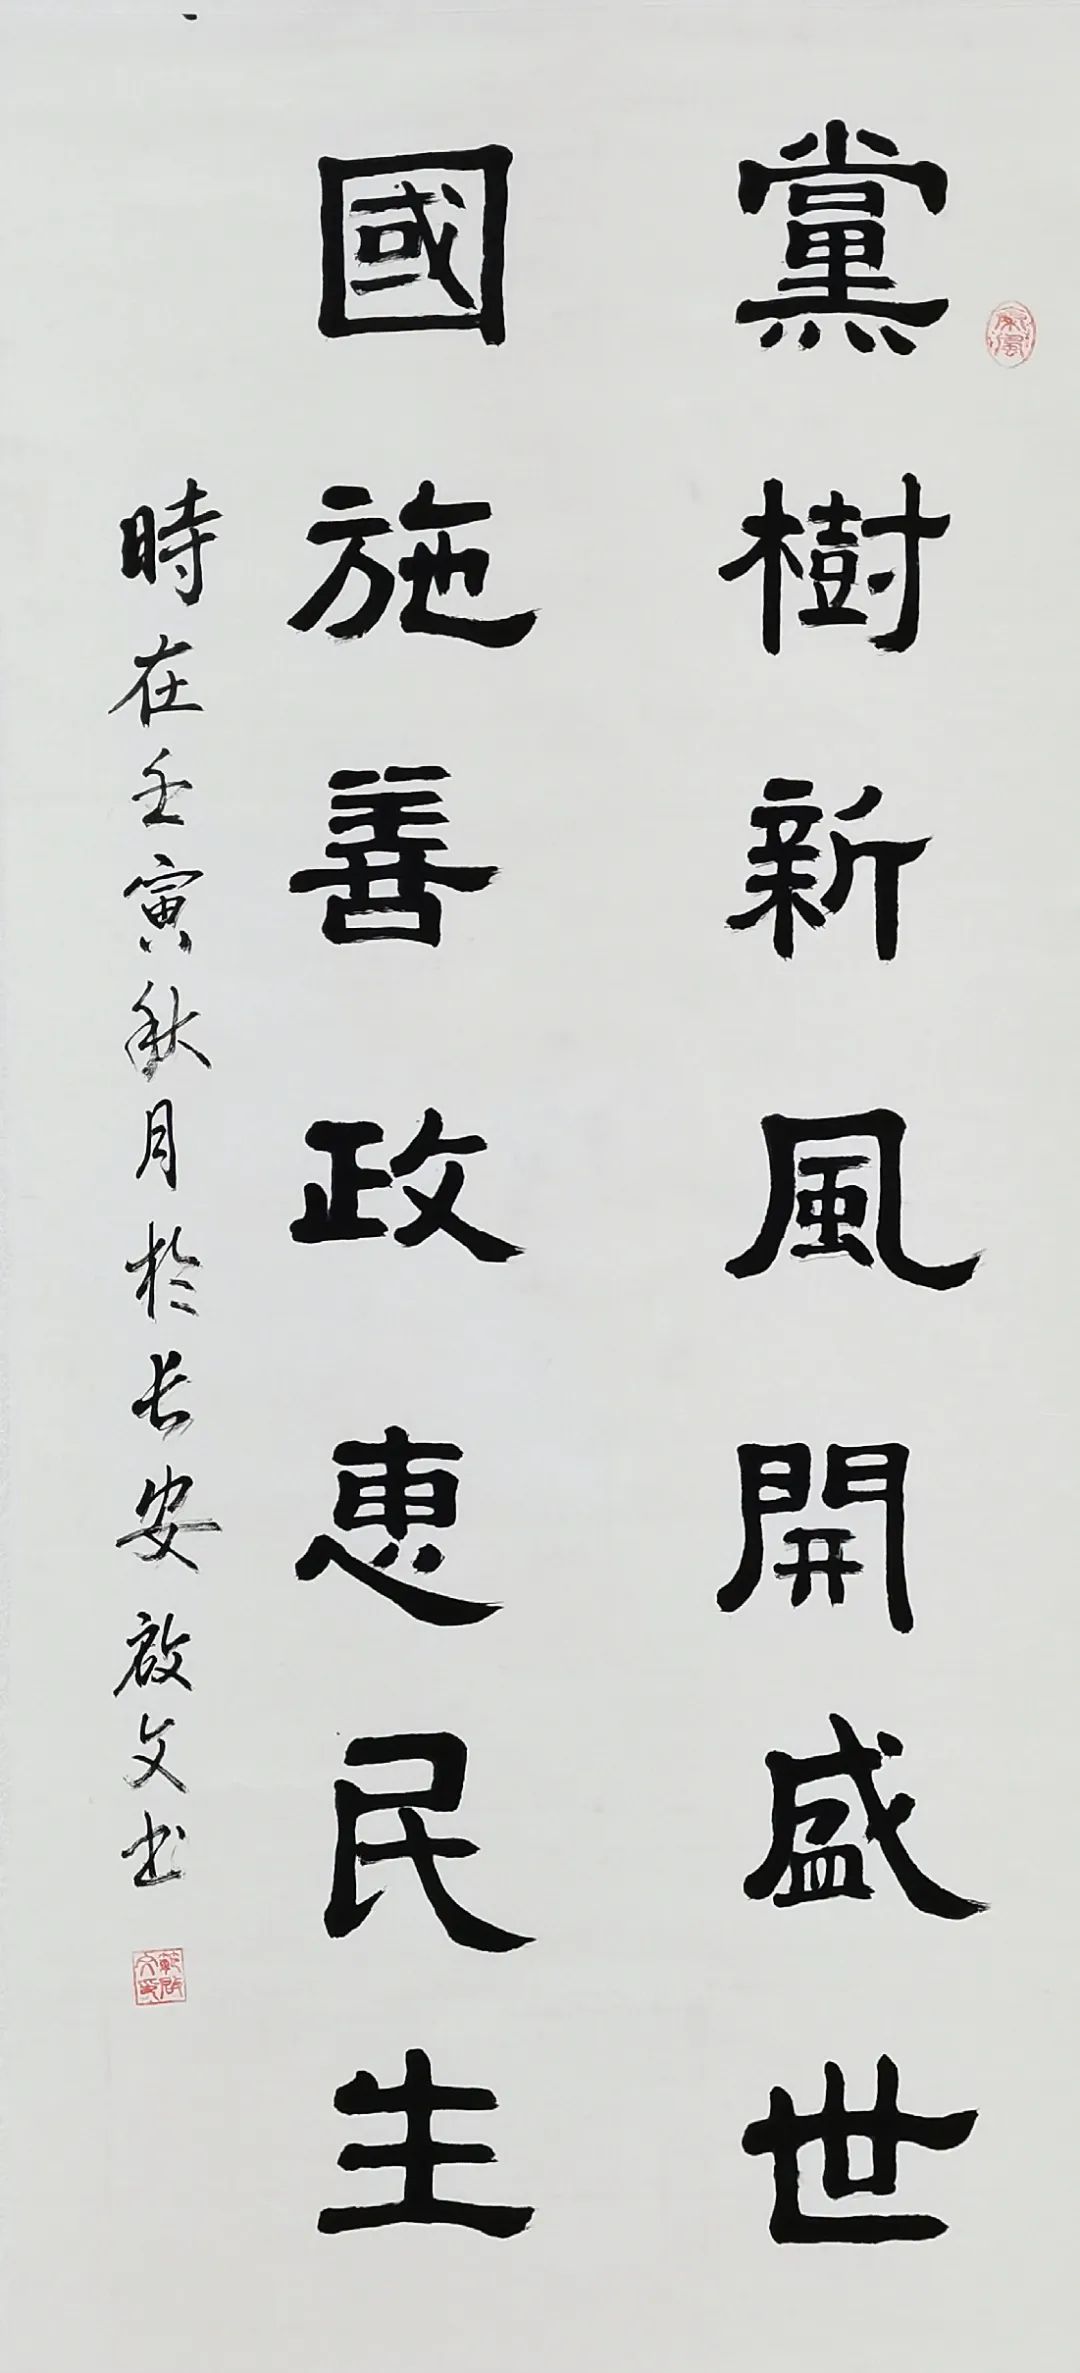 黨樹新風開盛世
國施善政惠民生
時在壬寅秋月於长安啟文书
範啟文印